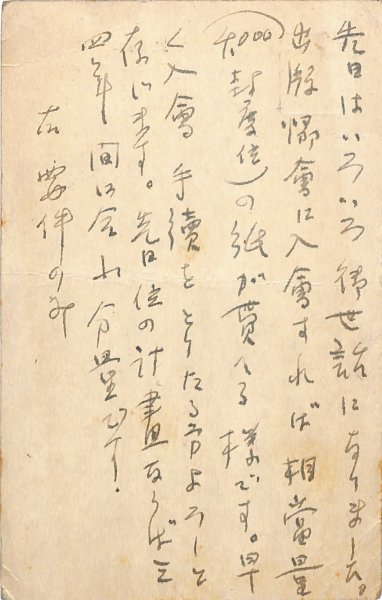 先日はいろいろ御世話になりました。
出版協會に入會すれば相當量
(4,000封度位)の紙が貰へる様です。早
く入會手續をとりたる方よろしと
存じます。先日位の計畫ならば三
四年間に合ふ分量です。
右要件のみ